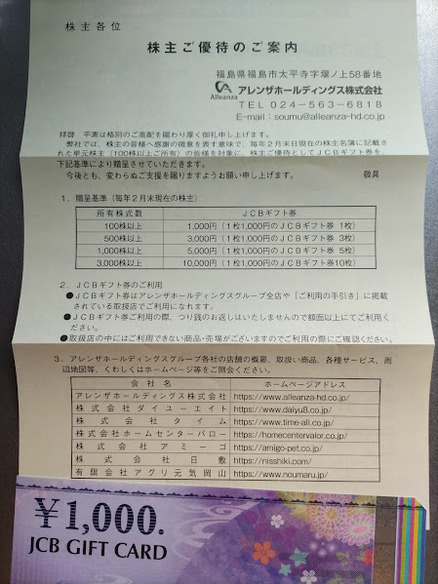 株主各位
株主ご優待のご案内
福島県福島市太平寺字堰ノ上58番地
Alleanza アレンザホールディングス株式会社
TEL 024-563-6818
E-mail：soumu@alleanza-hd.co.jp
拝啓 平素は格別のご高配を賜わり厚く御礼申し上げます。
弊社では、株主の皆様へ感謝の微意を表す意味で、毎年2月末日現在の株主名簿に記載き
れた単元株主「100株以上ご所有」の皆様を対象に、株主ご優待としてJCBギフト券を、
下記基準により贈呈させていただきます。
今後とも、変わらぬご支援を賜りますようお願い申し上げます。 敬具
1．贈呈基準（毎年2月末現在の株主）
所有株式数 JCBギフト券
100株以上 1,000円（1枚1,000円のJCBギフト券 1枚）
500株以上 3,000円（1枚1,000円のJCBギフト券 3枚）
1,000株以上 5,000円（1枚1,000円のJCBギフト券 5枚）
3,000株以上 10,000円（1枚1,000円のJCBギフト券10枚）
2．JCBギフト券のご利用
●JCBギフト券はアレンザホールディングスグループ全店や「ご利用の手引き」に掲載
されている取扱店でご利用になれます。
●JCBギフト券ご利用の際、つり銭のお返しはいたしませんので額面以上にてご利用く
ださい。
●取扱店の中にはご利用できない商品・売場がございますのでご利用の際にご確認ください。
3．アレンザホールディングスグループ各社の店舗の概要、取扱い商品、各種サービス、周
辺地図等、くわしくはホームページ等をご照会ください。
会社名 ホームページアドレス
アレンザホールディングス株式会社 https://www.alleanza-hd.co.jp/
株式会社ダイユーエイト https://www.daiyu8.co.jp/
株式会社タイム https://www.time-all.co.jp/
株式会社ホームセンターバロー https://homecentervalor.co.jp/
株式会社アミーゴ https://amigo-pet.co.jp/
株式会社日敷 https://nisshiki.com/
有限会社アグリ元気岡山 https://www.noumaru.jp/
¥1,000.
JCB GIFT CARD